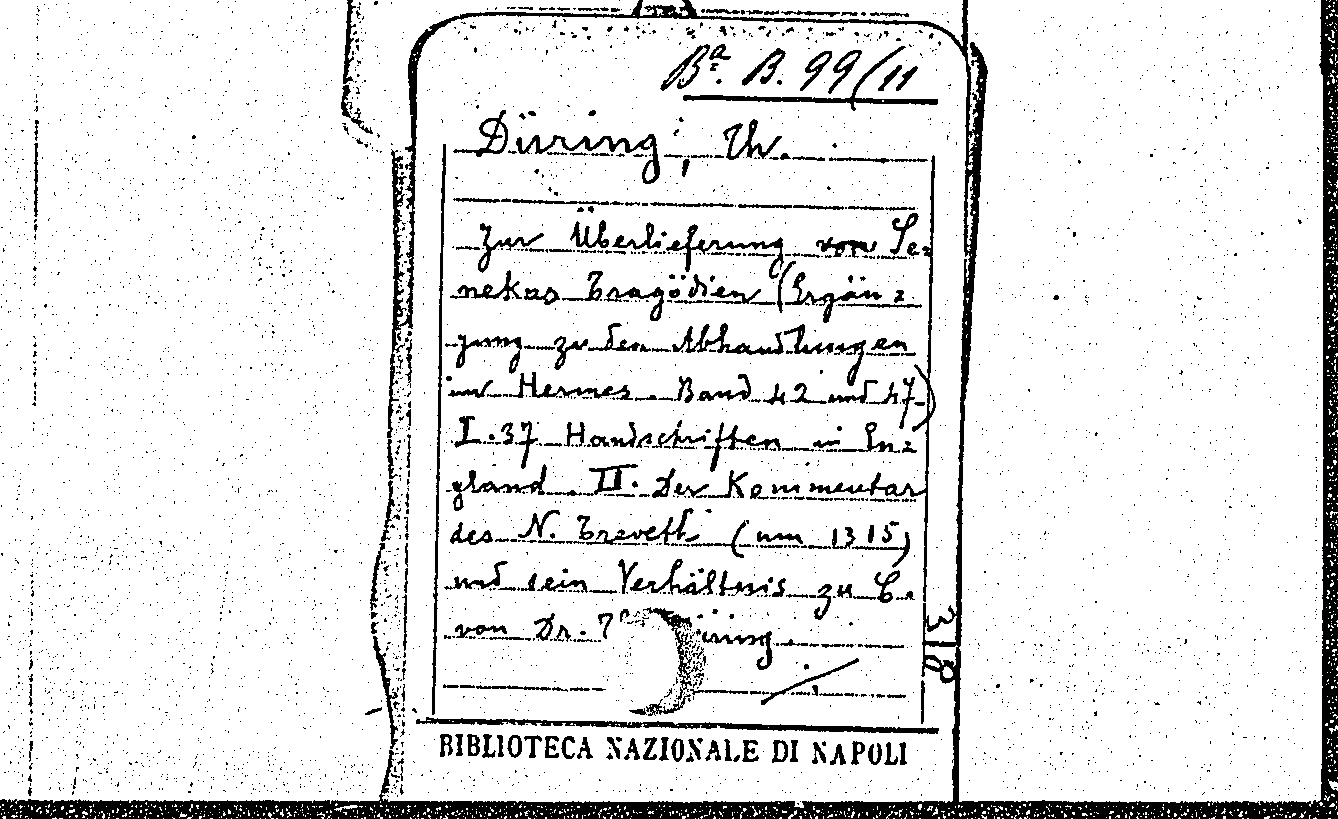 Bª. B. 99/11
Düring, Th.
Zur Überlieferung von Se=
nekas Tragödien (Ergän=
zung zu den Abhandlungen
im Hermes. Band 42 und 47)
I. 37 Handschriften in En=
gland. II. Der Kommentar
des N. Treveth (um 1315)
und sein Verhältnis zu C.
von Dr.
BIBLIOTECA NAZIONALE DI NAPOLI